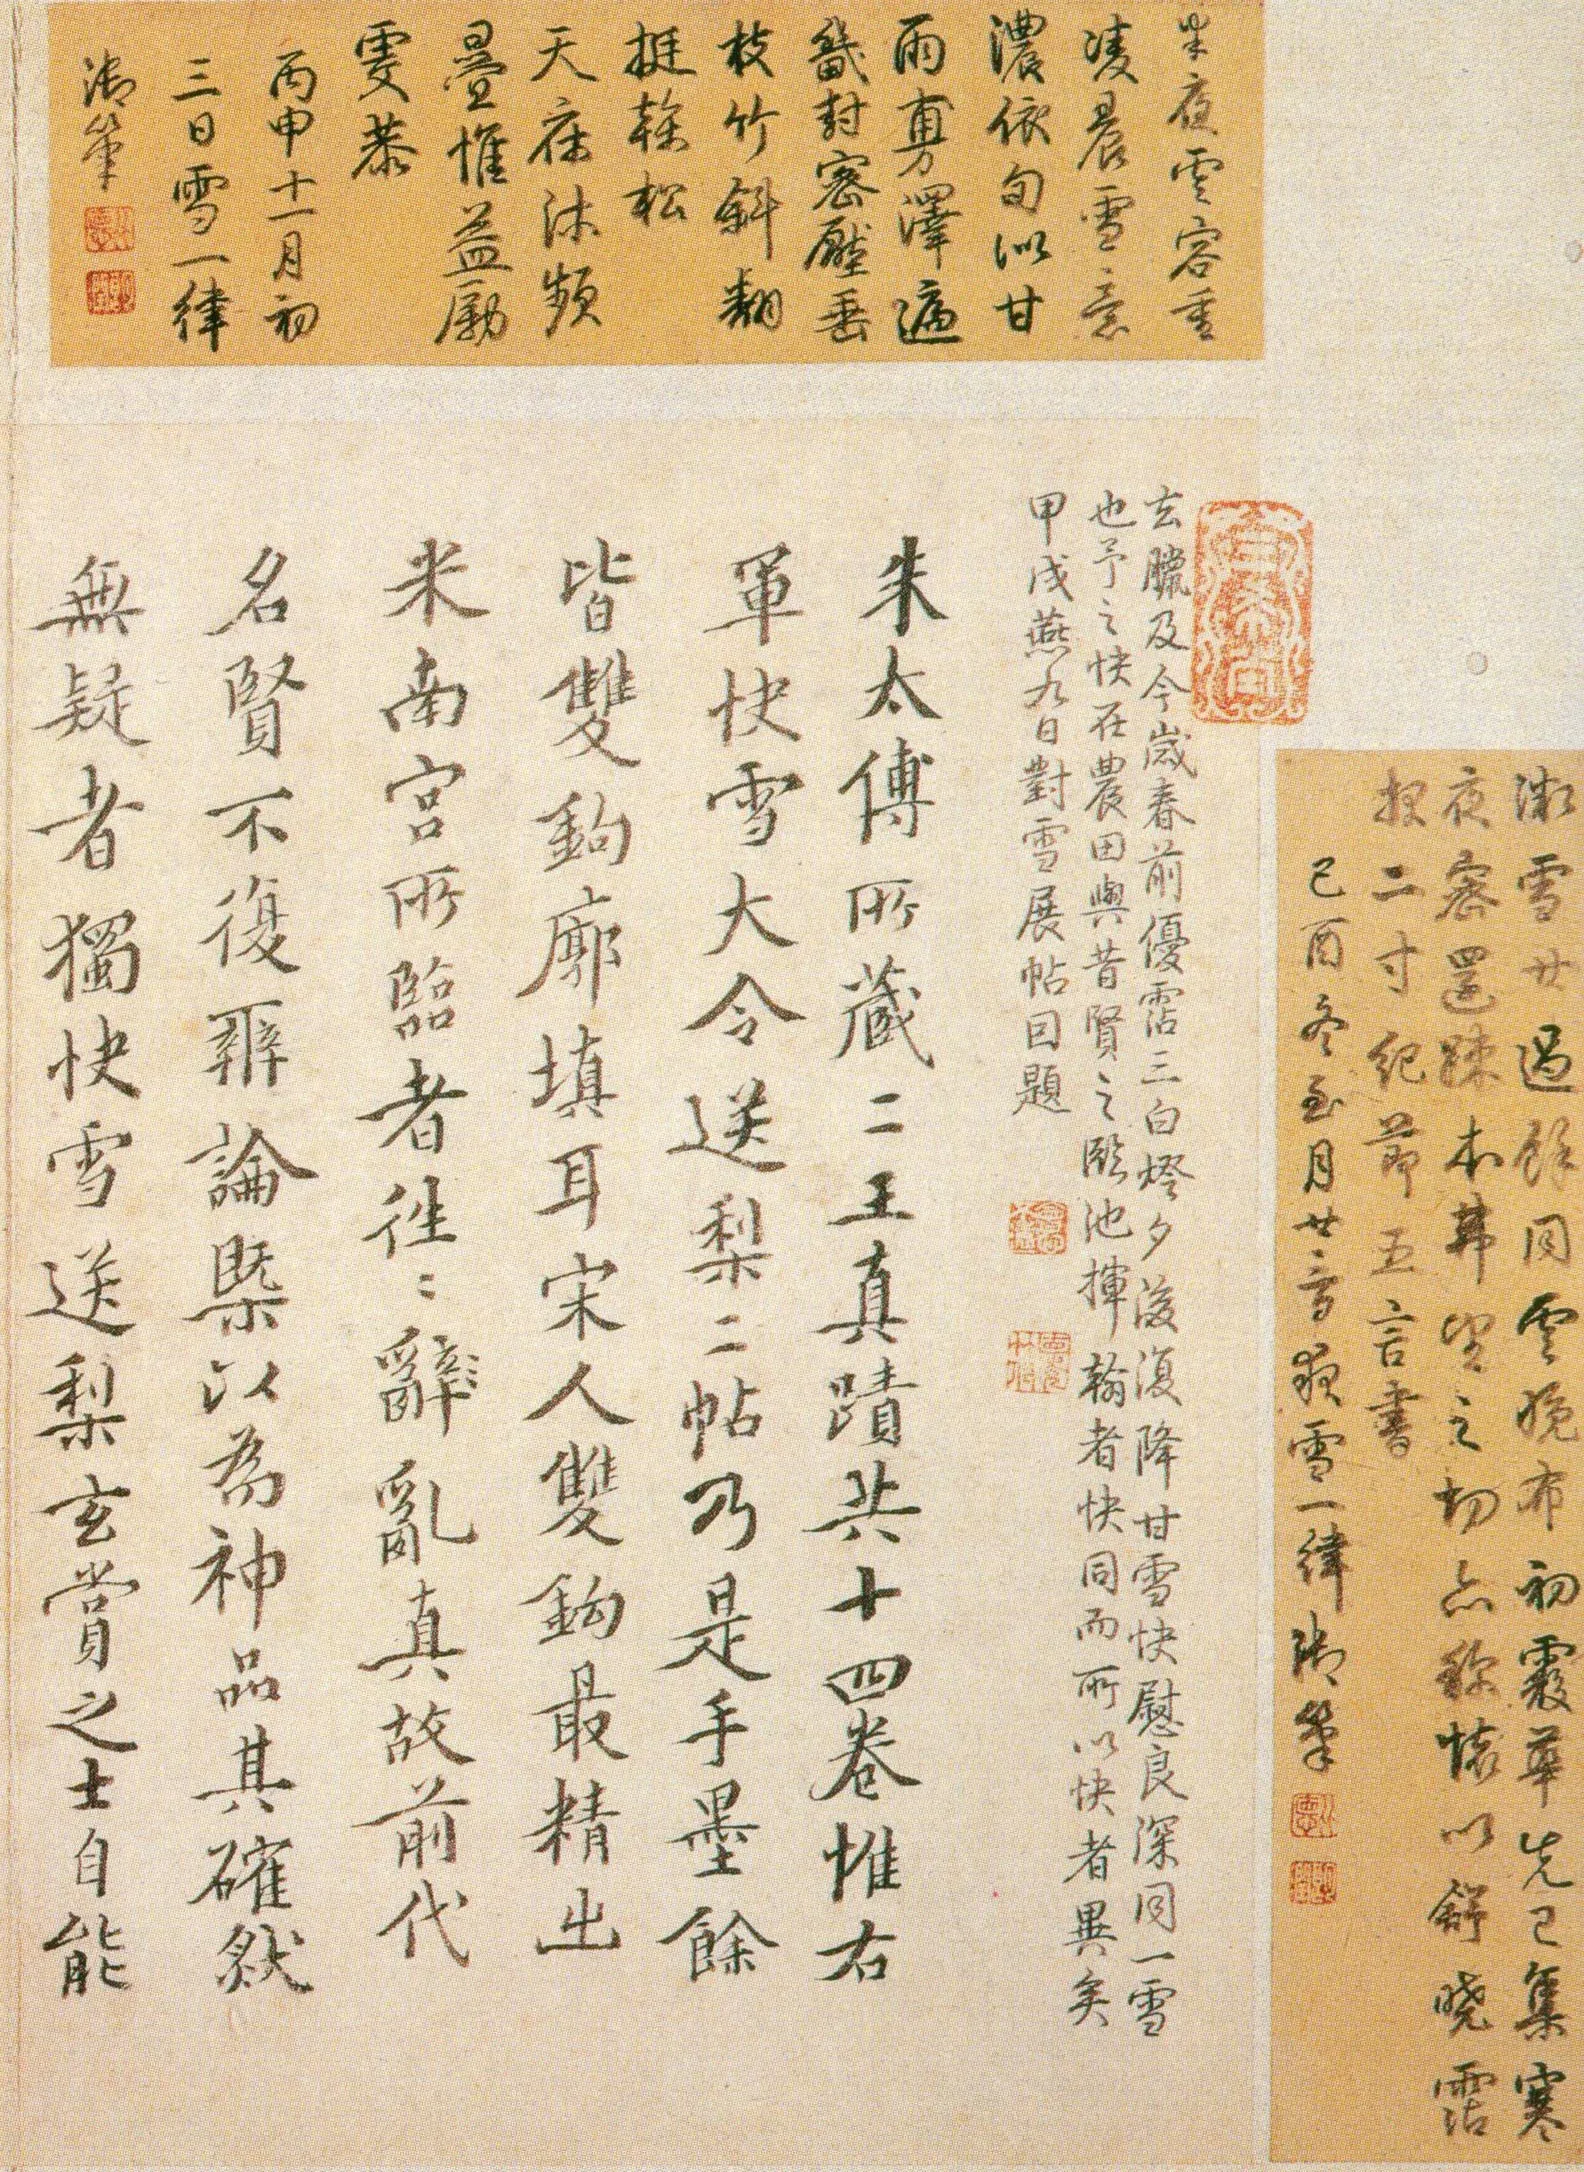 半夜雲容重
凌晨雪意
濃依旬似甘
雨旉澤遍
畿封密壓垂
枝竹斜翻
挺榦松
天庥沐頻
疊惟益勵
雯恭
丙申十一月初
三日雪一律
御筆
澈雪廿過餘同雲晚布初霰華先已集寒
夜密還疎本弗望之切亦縁懷以舒曉霑
報二寸紀節五言書
己酉冬至月廿六日夜雪一律御筆
玄臘及今歲春前優霑三白燈夕後復降甘雪快慰良深同一雪
也予之快在農田與昔賢之臨池揮翰者快同而所以快者異矣
甲戌燕九日對雪展帖因題
朱太傅所藏二王真蹟共十四卷惟右
軍快雪大令送梨二帖乃是手墨餘
皆雙鉤廓填耳宋人雙鈎最精出
米南宮所臨者往〻辭亂真故前代
名賢不復辨論槩以為神品其確然
無疑者獨快雪送梨玄賞之士自能